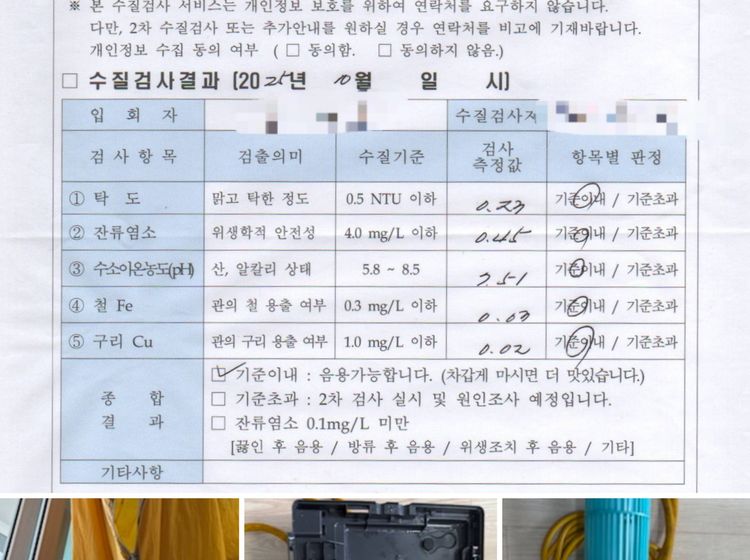 ※ 본 수질검사 서비스는 개인정보 보호를 위하여 연락처를 요구하지 않습니다.
다만, 2차 수질검사 또는 추가안내를 원하실 경우 연락처를 비고에 기재바랍니다.
개인정보 수집 동의 여부 ( □ 동의함. □ 동의하지 않음.)
□ 수질검사결과 (2025년 10월 일 시)
입 회 자 수질검사자
검 사 항 목 검출의미 수질기준 검사 측정값 항목별 판정
① 탁 도 맑고 탁한 정도 0.5 NTU 이하 0.23 기준이내 / 기준초과
② 잔류염소 위생학적 안전성 4.0 mg/L 이하 0.45 기준이내 / 기준초과
③ 수소이온농도(pH) 산, 알칼리 상태 5.8 ~ 8.5 7.51 기준이내 / 기준초과
④ 철 Fe 관의 철 용출 여부 0.3 mg/L 이하 0.03 기준이내 / 기준초과
⑤ 구리 Cu 관의 구리 용출 여부 1.0 mg/L 이하 0.02 기준이내 / 기준초과
종 합 결 과
☑ 기준이내 : 음용가능합니다. (차갑게 마시면 더 맛있습니다.)
□ 기준초과 : 2차 검사 실시 및 원인조사 예정입니다.
□ 잔류염소 0.1mg/L 미만
[끓인 후 음용 / 방류 후 음용 / 위생조치 후 음용 / 기타]
기타사항